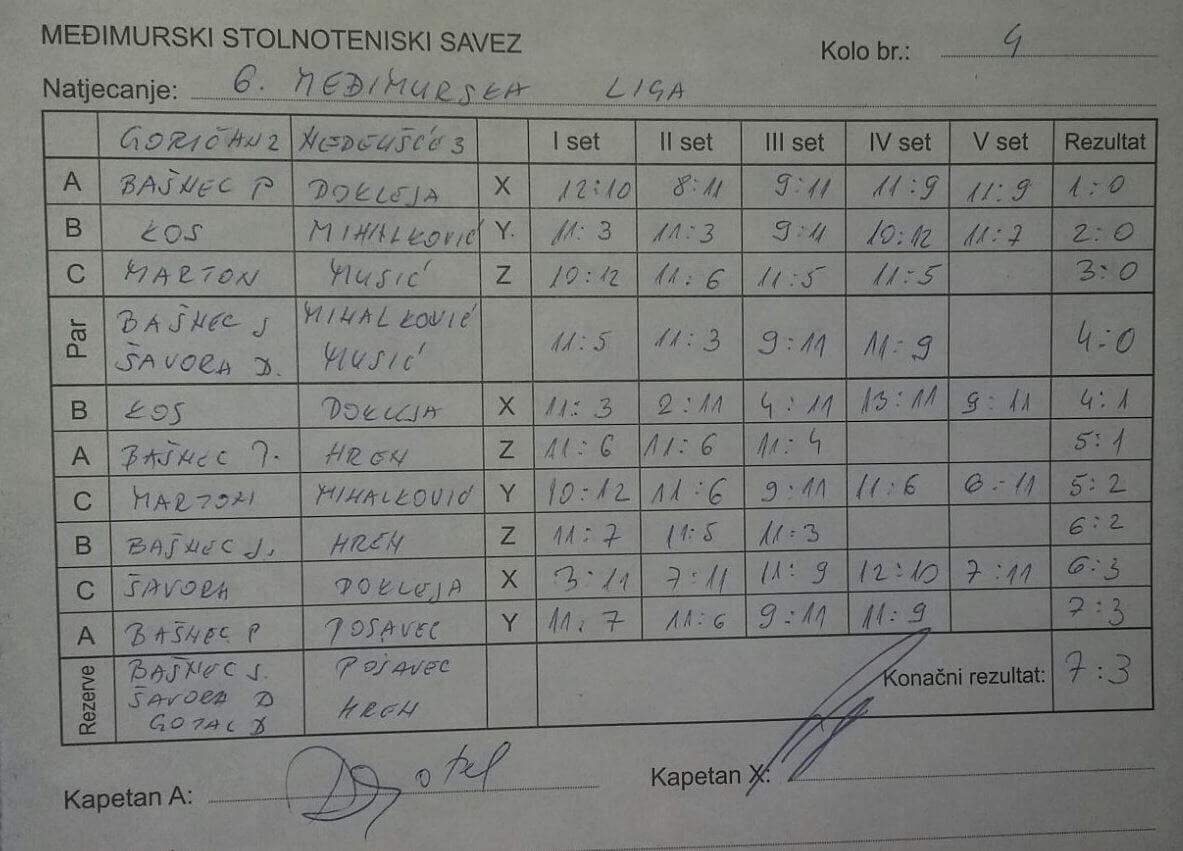 MEĐIMURSKI STOLNOTENISKI SAVEZ
Kolo br.: 4
Natjecanje: 6. MEĐIMURSKA LIGA
GORIČAN 2 NEDELIŠĆE 3 I set II set III set IV set V set Rezultat
A BAŠNEC P DOKLEJA X 12:10 8:11 9:11 11:9 11:9 1:0
B KOS MIHALKOVIĆ Y. 11:3 11:3 9:11 10:12 11:7 2:0
C MARTON MUSIĆ Z 10:12 11:6 11:5 11:5 3:0
Par BAŠNEC J MIHALKOVIĆ 11:5 11:3 9:11 11:9 4:0
ŠAVORA D. MUSIĆ
B KOS DOKLEJA X 11:3 2:11 4:11 13:11 9:11 4:1
A BAŠNEC P. HREN Z 11:6 11:6 11:4 5:1
C MARTON MIHALKOVIĆ Y 10:12 11:6 9:11 11:6 6:11 5:2
B BAŠNEC J. HREN Z 11:7 11:5 11:3 6:2
C ŠAVORA DOKLEJA X 3:11 7:11 11:9 12:10 7:11 6:3
A BAŠNEC P POSAVEC Y 11:7 11:6 9:11 11:9 7:3
Rezerve BAŠNEC J. POSAVEC Konačni rezultat: 7:3
ŠAVORA D HREN
GOTAL D
Kapetan A:
Kapetan X: